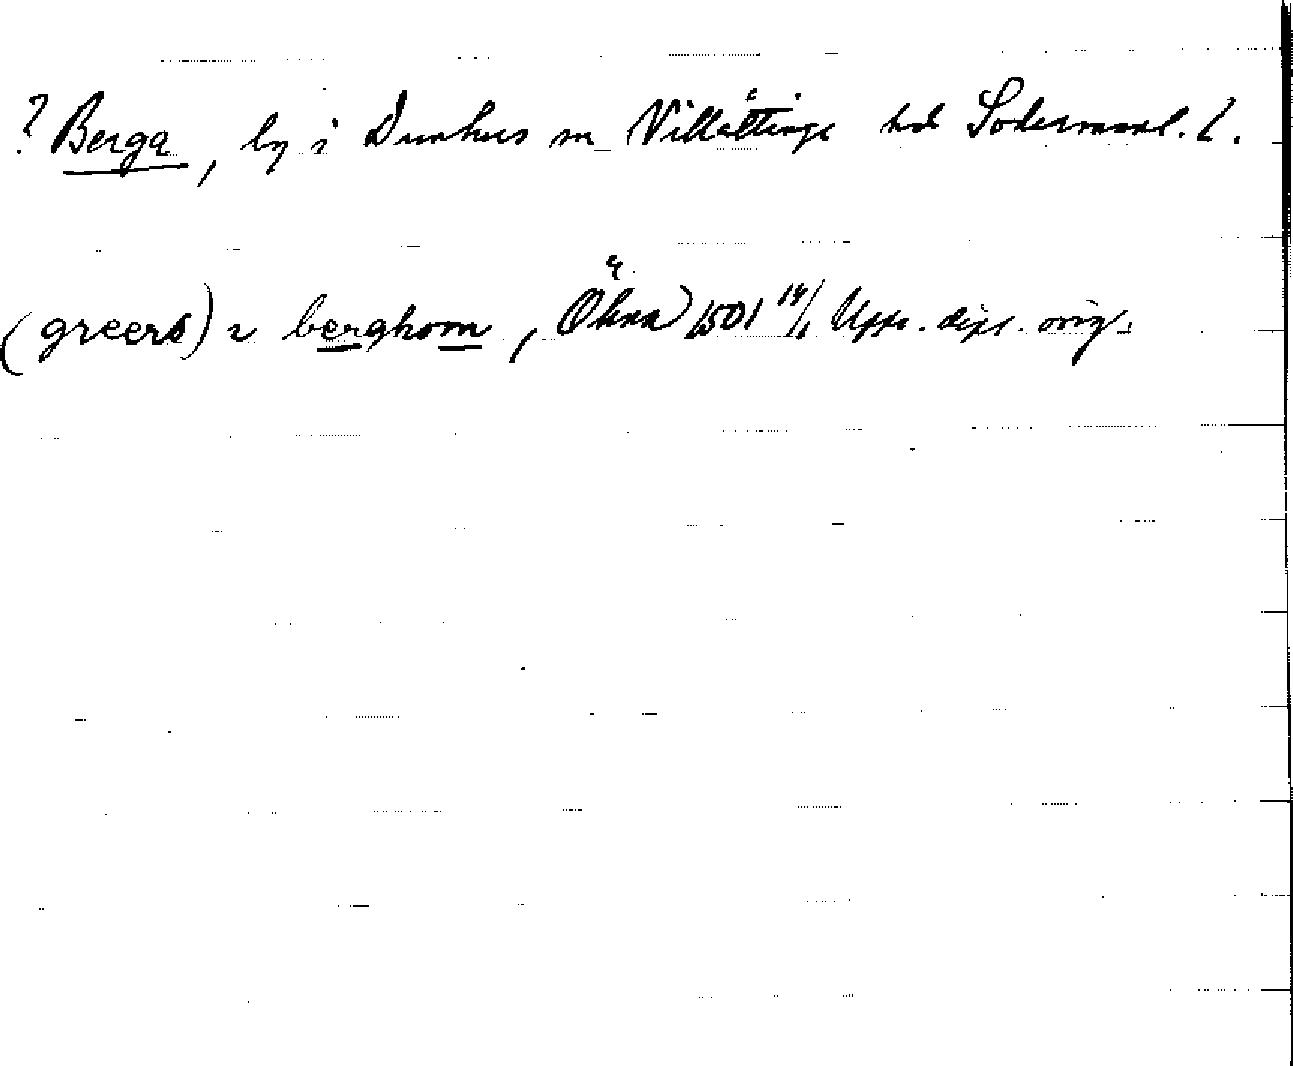 ? Berga, by i Dunkers sn Villåttinge hd Södermanl. l.
(greers) i berghom, Ökna) 1501 14/1 Upps. dipl. orig.